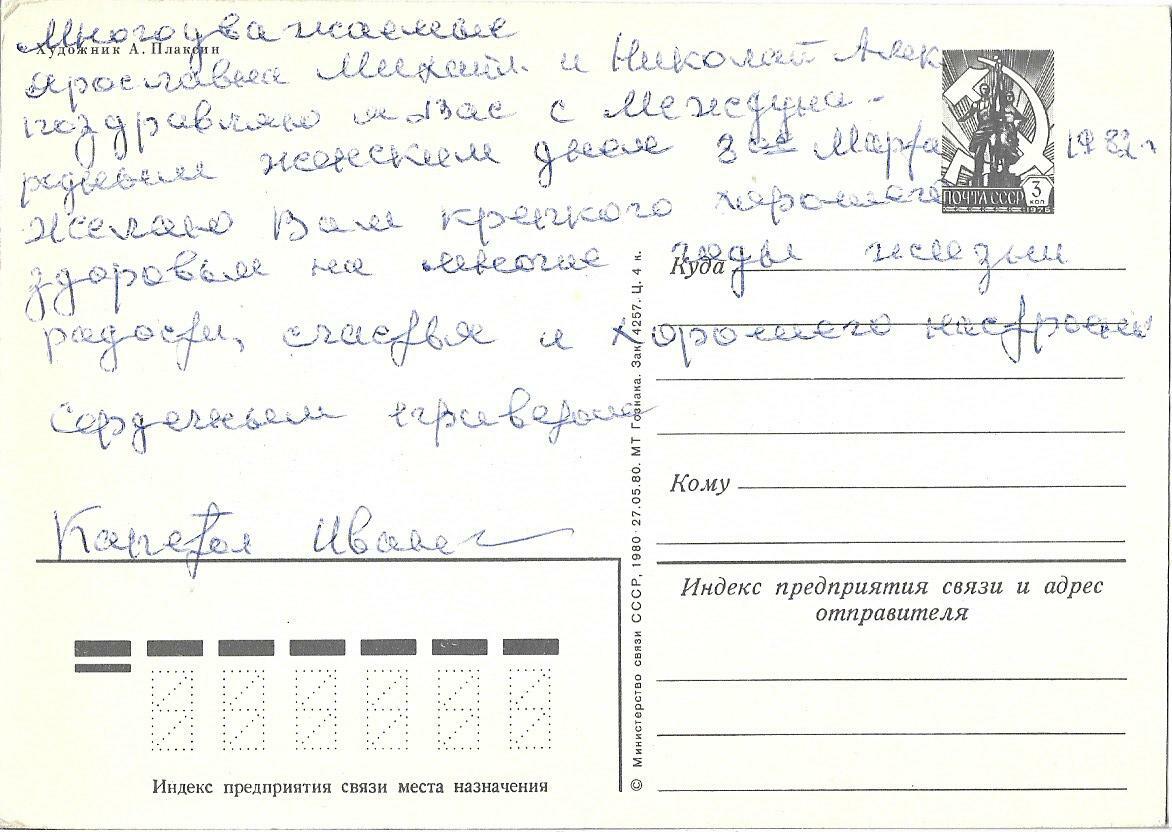 Многоуважаемые
Художник А. Плаксин
Ярославна Михайл. и Николай Алек
поздравляю и Вас с Междуна-
родным женским днем 8ое Марта 1982 г
Желаю Вам крепкого хорошего
здоровья на многие годы жизни
радости, счастья и хорошего настроен
Сердечным приветом
Капетол Иванов
ПОЧТА СССР 3 КОП
1976
Куда
Кому
Индекс предприятия связи и адрес
отправителя
Индекс предприятия связи места назначения
© Министерство связи СССР, 1980 · 27.05.80. МТ Гознака. Зак. 4257. Ц. 4 к.